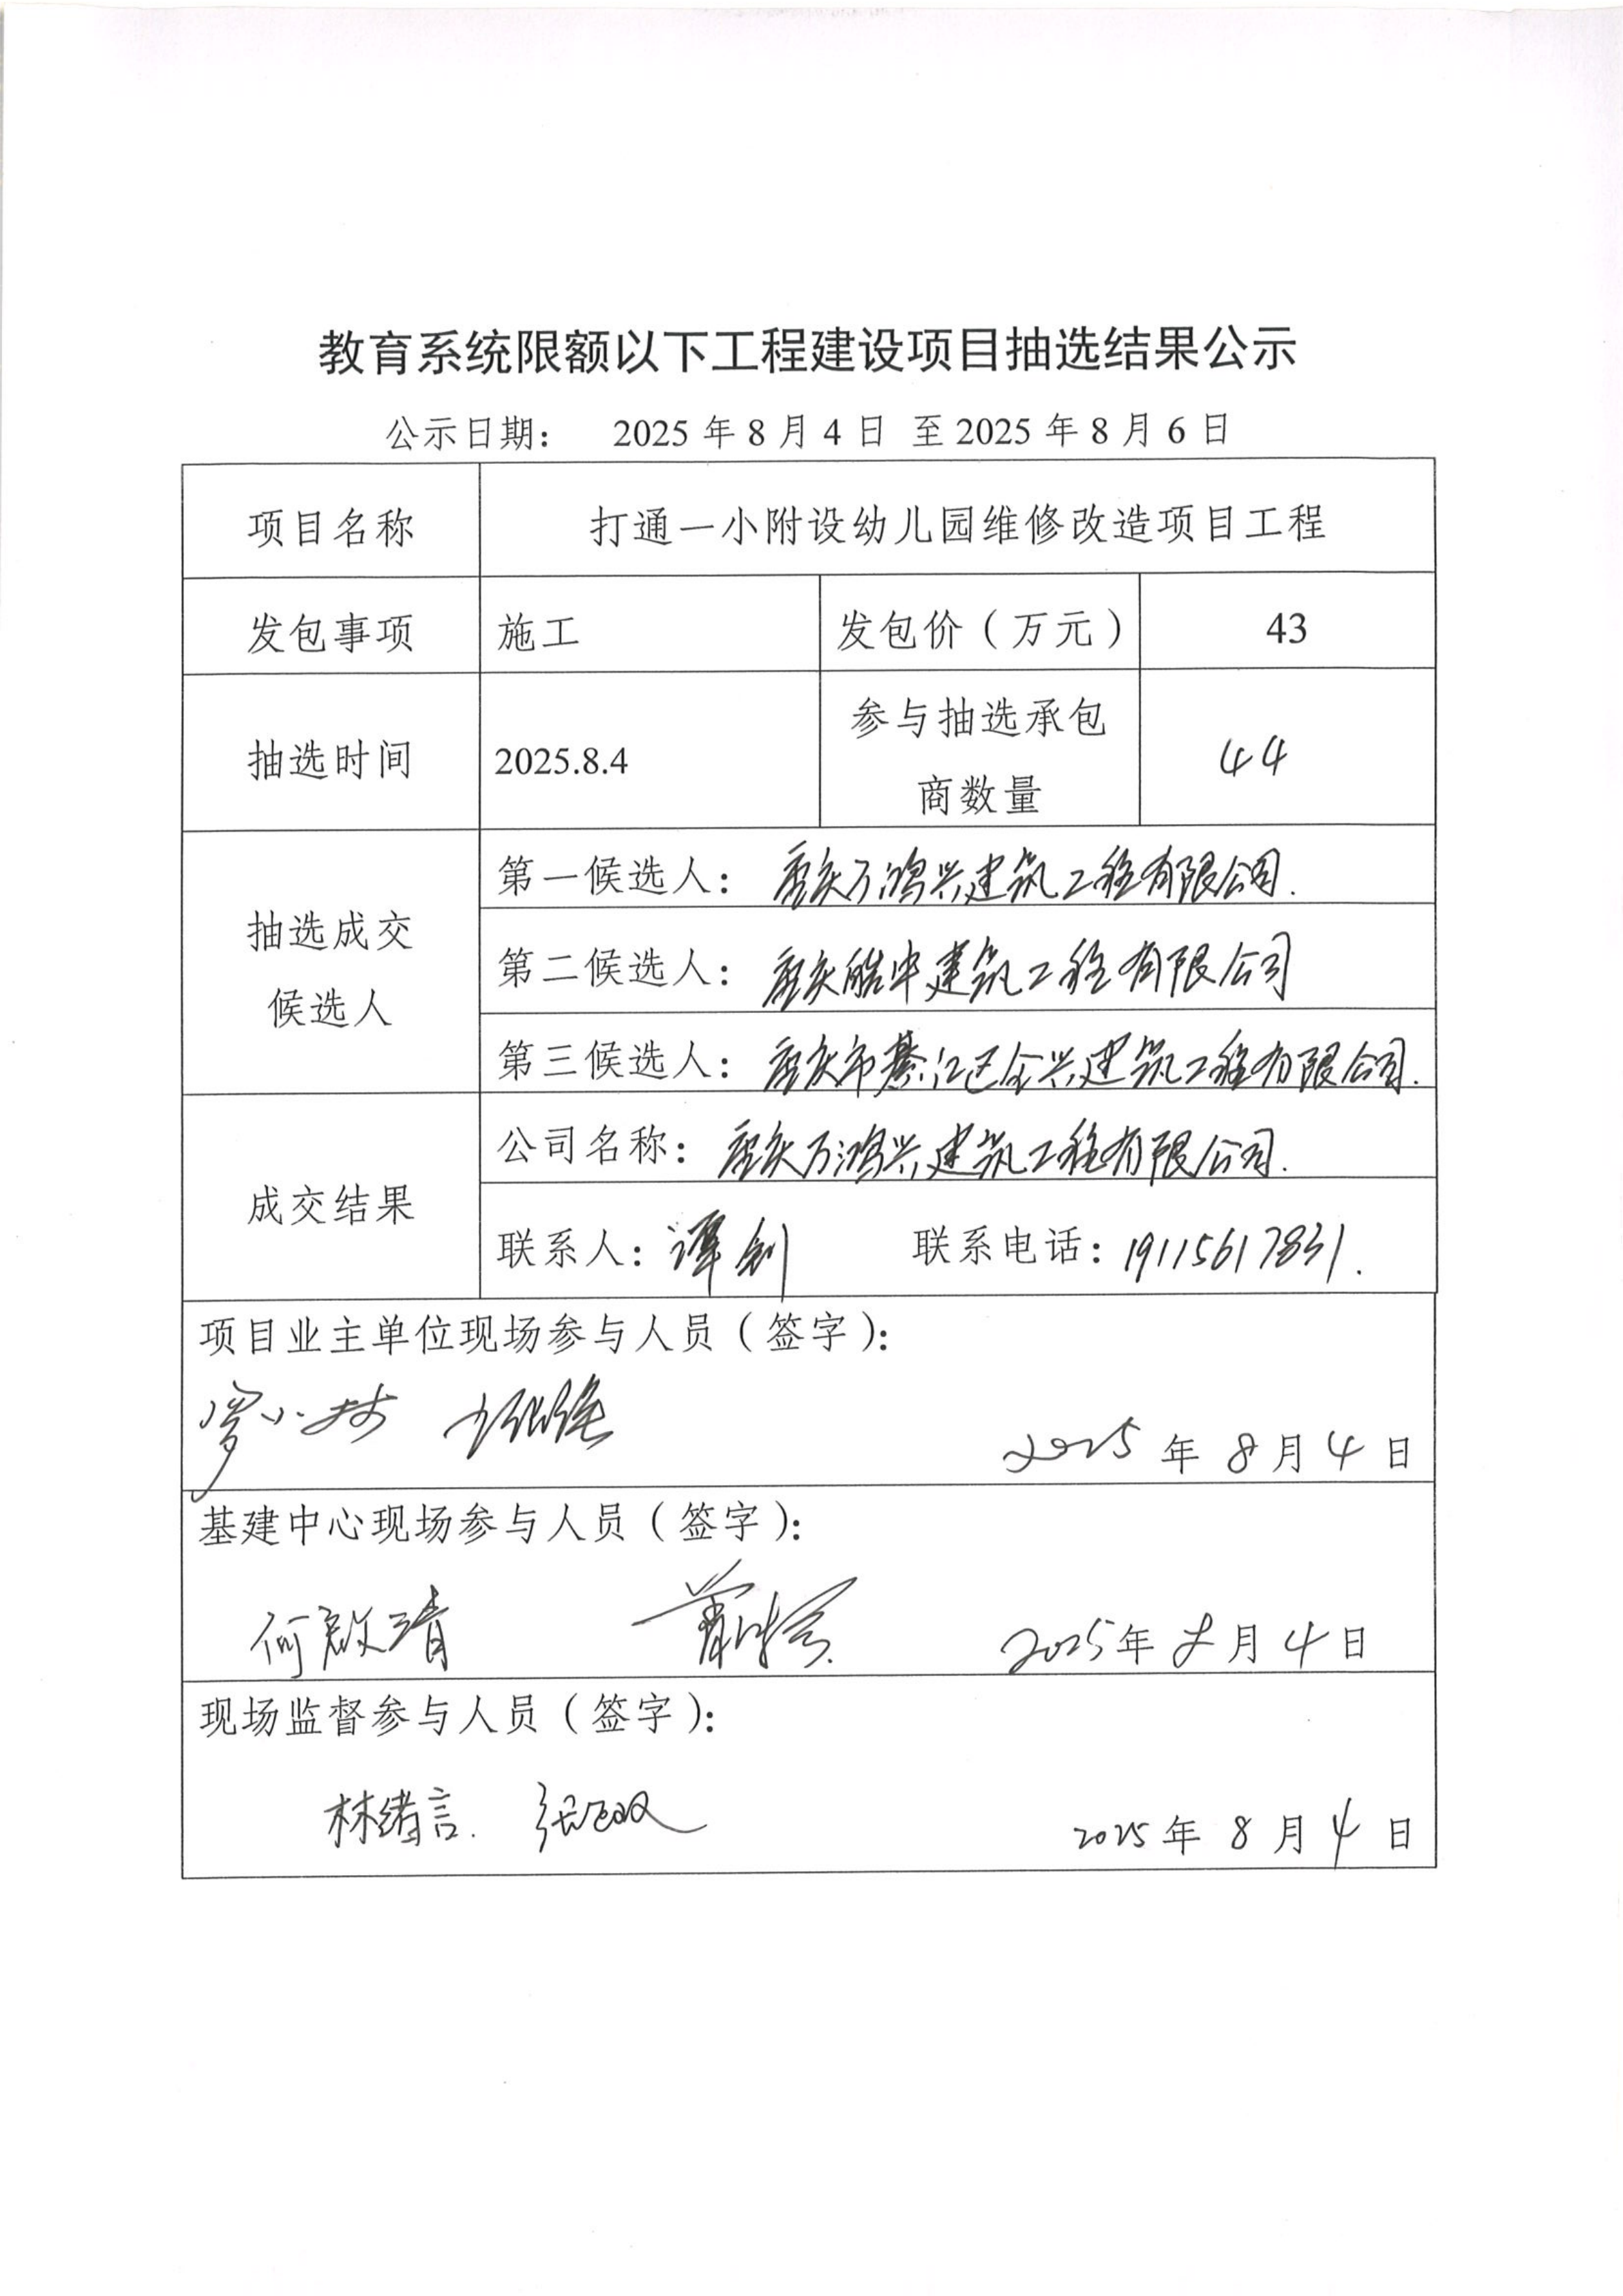 教育系统限额以下工程建设项目抽选结果公示
公示日期： 2025 年 8 月 4 日 至 2025 年 8 月 6 日
项目名称 打通一小附设幼儿园维修改造项目工程
发包事项 施工 发包价（万元） 43
抽选时间 2025.8.4 参与抽选承包商数量 44
抽选成交候选人
第一候选人：重庆万鸿兴建筑工程有限公司.
第二候选人：重庆皓中建筑工程有限公司
第三候选人：重庆市綦江区金兴建筑工程有限公司.
成交结果
公司名称：重庆万鸿兴建筑工程有限公司.
联系人：谭剑 联系电话：19115617831.
项目业主单位现场参与人员（签字）：
2025 年 8 月 4 日
基建中心现场参与人员（签字）：
何啟清 2025年 8 月 4 日
现场监督参与人员（签字）：
林绪言. 2025 年 8 月 4 日